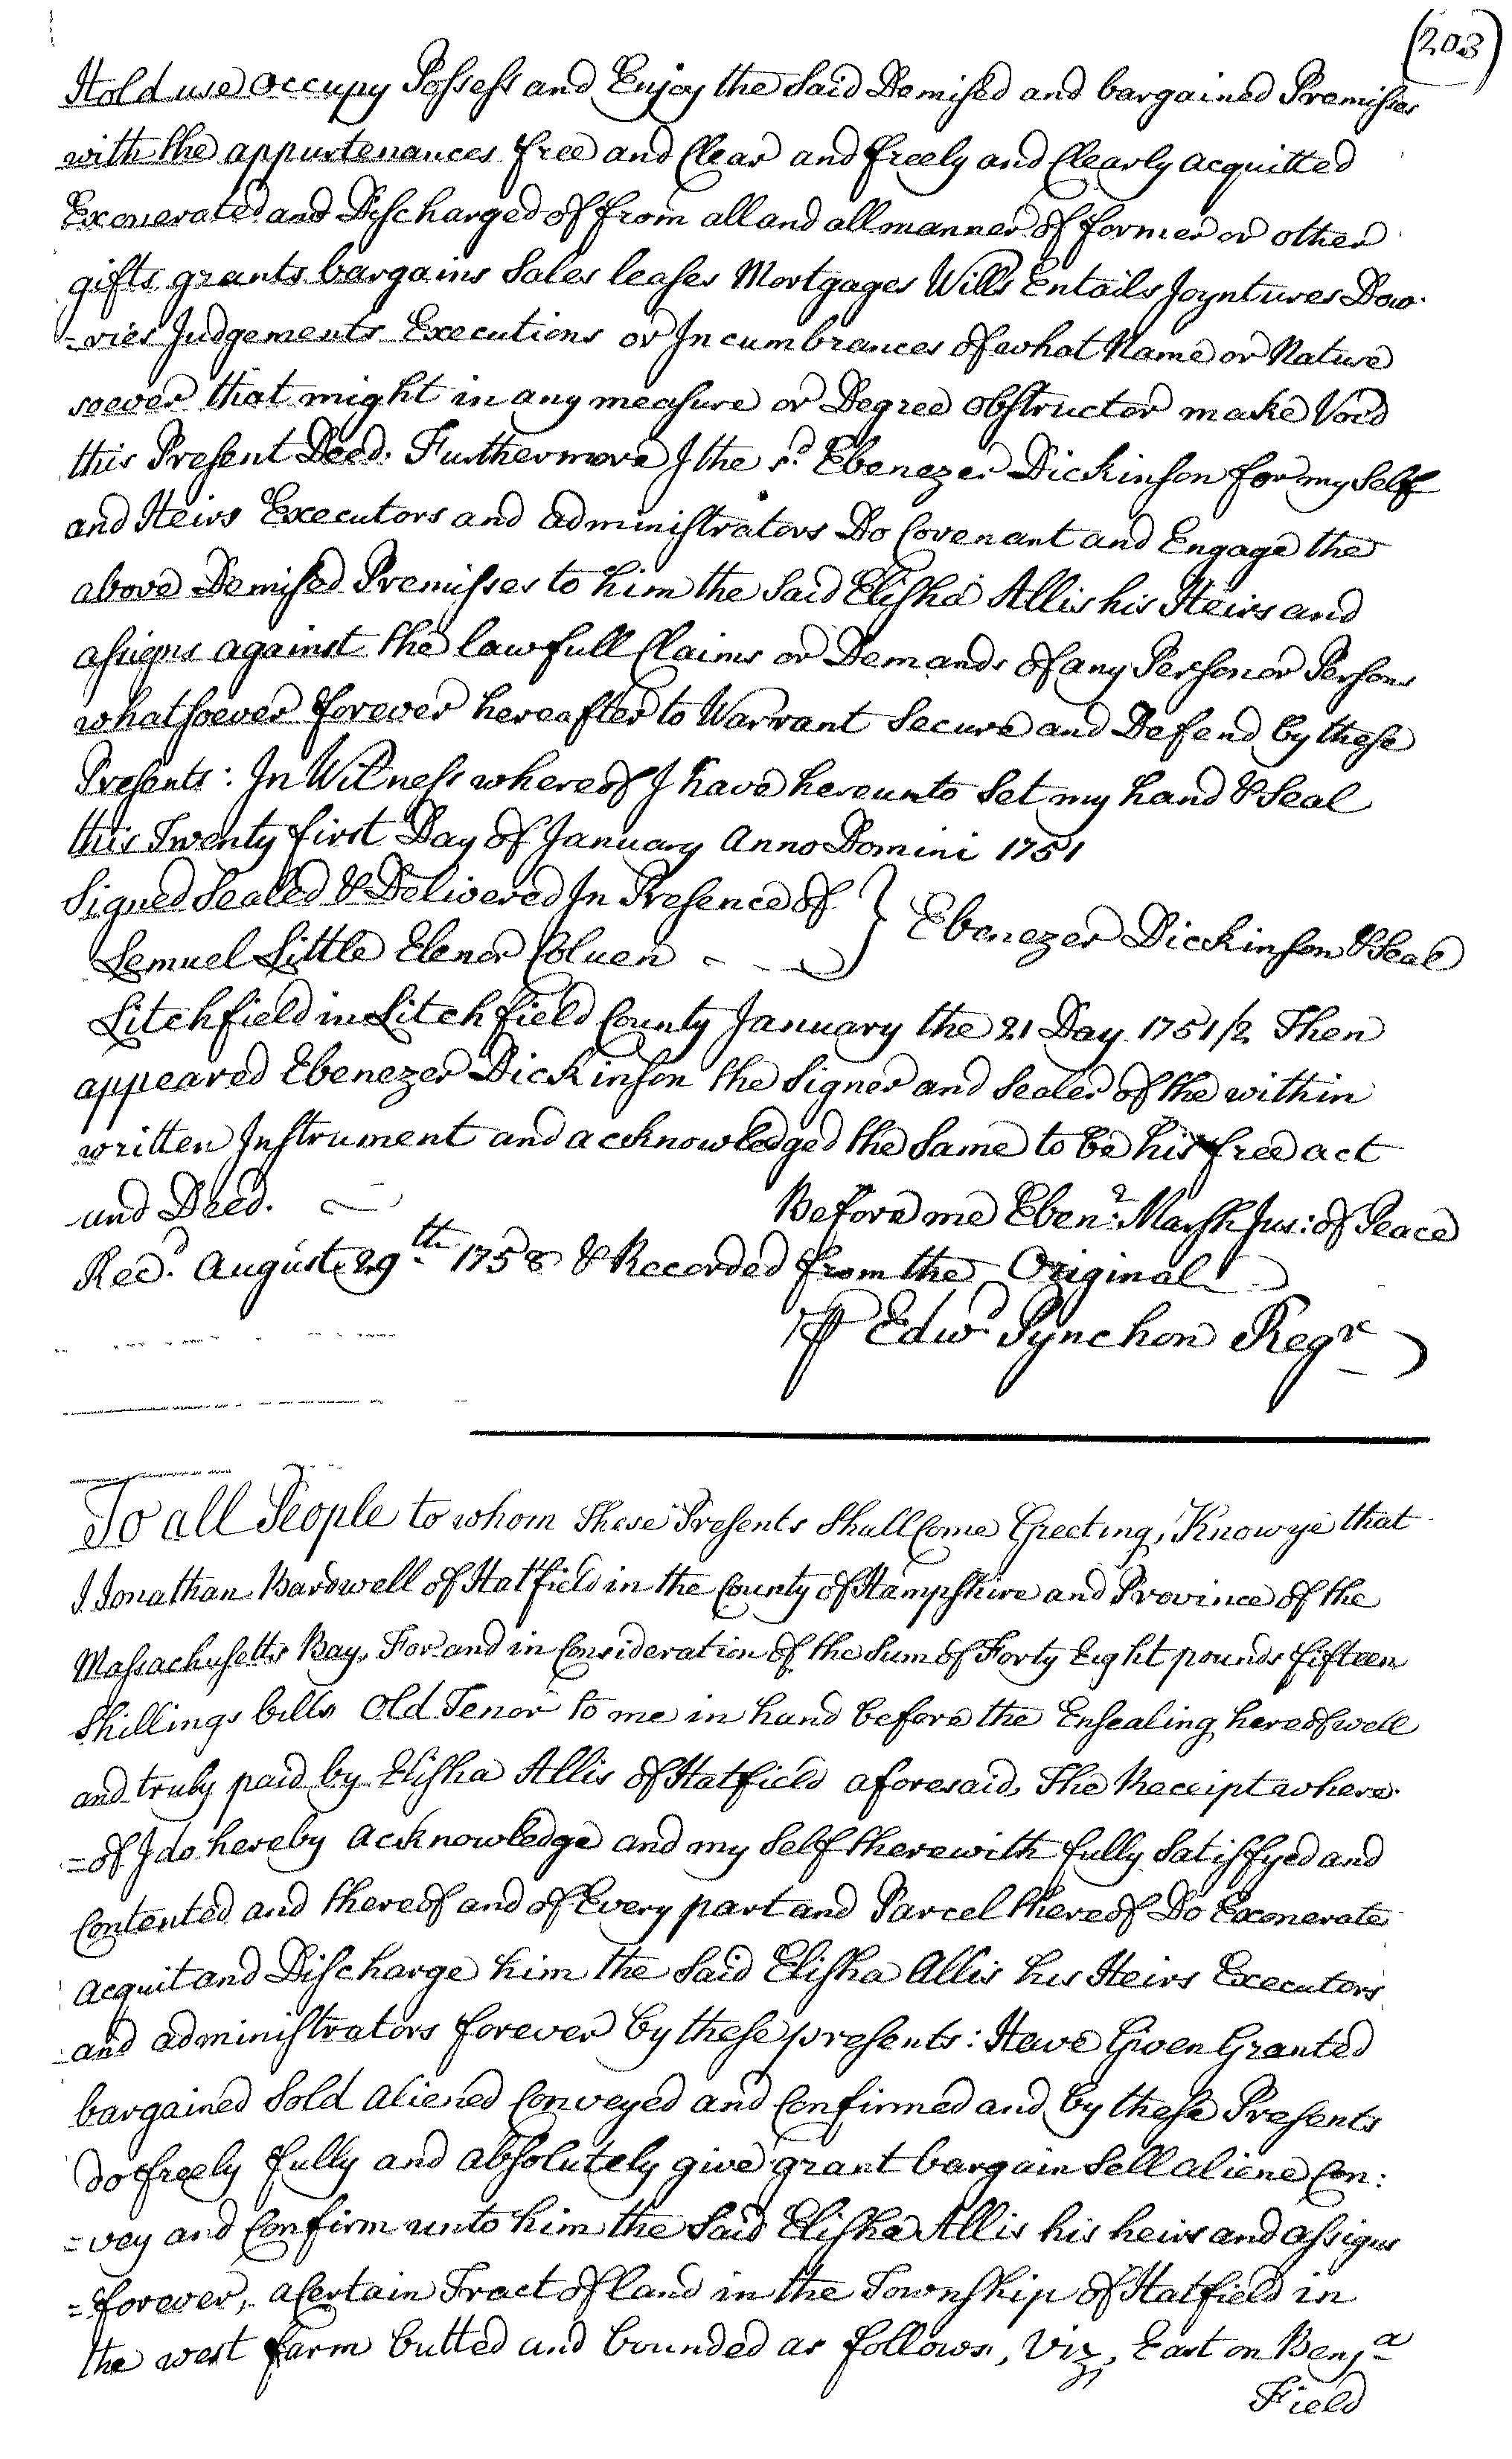 (203)
Hold use occupy Possess and Enjoy the Said Demised and bargained Premisses
with the appurtenances free and Clear and freely and Clearly acquitted
Exonerated and Discharged of from all and all manner of former or other
gifts grants bargains Sales leases Mortgages Wills Entails Joyntures Dow-
=ries Judgements Executions or Incumbrances of what Name or Nature
soever that might in any measure or Degree obstruct or make Void
this Present Deed. Furthermore I the sd. Ebenezer Dickinson for my Self
and Heirs Executors and administrators Do Covenant and Engage the
above Demised Premisses to him the Said Elisha Allis his Heirs and
assigns against the lawfull Claims or Demands of any Person or Persons
whatsoever forever hereafter to Warrant Secure and Defend by these
Presents: In Witness whereof I have hereunto Set my hand & Seal
this Twenty first Day of January Anno Domini 1751
Signed Sealed & Delivered In Presence of } Ebenezer Dickinson & Seal
Lemuel Little Elenor Coluen
Litchfield in Litchfield County January the 21 Day 1751/2 Then
appeared Ebenezer Dickinson the Signer and Sealer of the within
written Instrument and acknowledged the Same to be his free act
and Deed. Before me Ebenr. Marsh Jus: of Peace
Recd. August 29th 1758 & Recorded from the Original
⅌ Edwd. Pynchon Regr
To all People to whom These Presents Shall Come Greeting, Know ye that
I Jonathan Bardwell of Hatfield in the County of Hampshire and Province of the
Massachusetts Bay, For and in Consideration of the Sum of Forty Eight pounds fifteen
Shillings bills Old Tenor to me in hand before the Ensealing hereof well
and truly paid by Elisha Allis of Hatfield aforesaid, The Receipt where-
=of I do hereby acknowledge and my Self therewith fully Satisfyed and
Contented and thereof and of Every part and Parcel thereof Do Exonerate
acquit and Discharge him the Said Elisha Allis his Heirs Executors
and administrators forever by these presents: Have Given Granted
bargained Sold aliened Conveyed and Confirmed and by these Presents
do freely fully and absolutely give grant bargain Sell aliene Con:
=vey and Confirm unto him the Said Elisha Allis his heirs and assigns
=forever, a Certain Tract of land in the Township of Hatfield in
the west farm butted and bounded as follows, Viz, East on Benja
Field